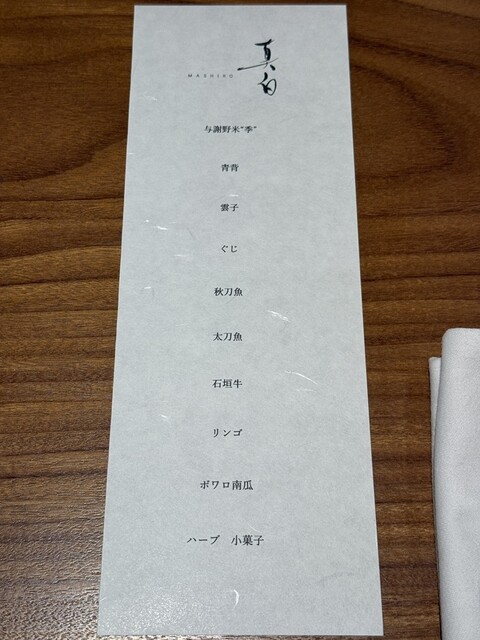 真白
MASHIRO
与謝野米"季"
青背
雲子
ぐじ
秋刀魚
太刀魚
石垣牛
リンゴ
ポワロ南瓜
ハーブ　小菓子